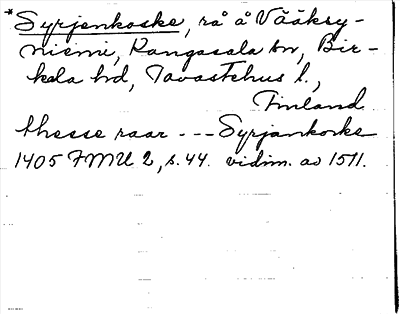 *Syrjenkoske, rå å Vääksy-
niemi, Kangasala sn, Bir-
kala hd, Tavastehus l.,
Finland
thesse raar --- Syrjankoske
1405 FMU 2, s. 44. vidim. av 1511.